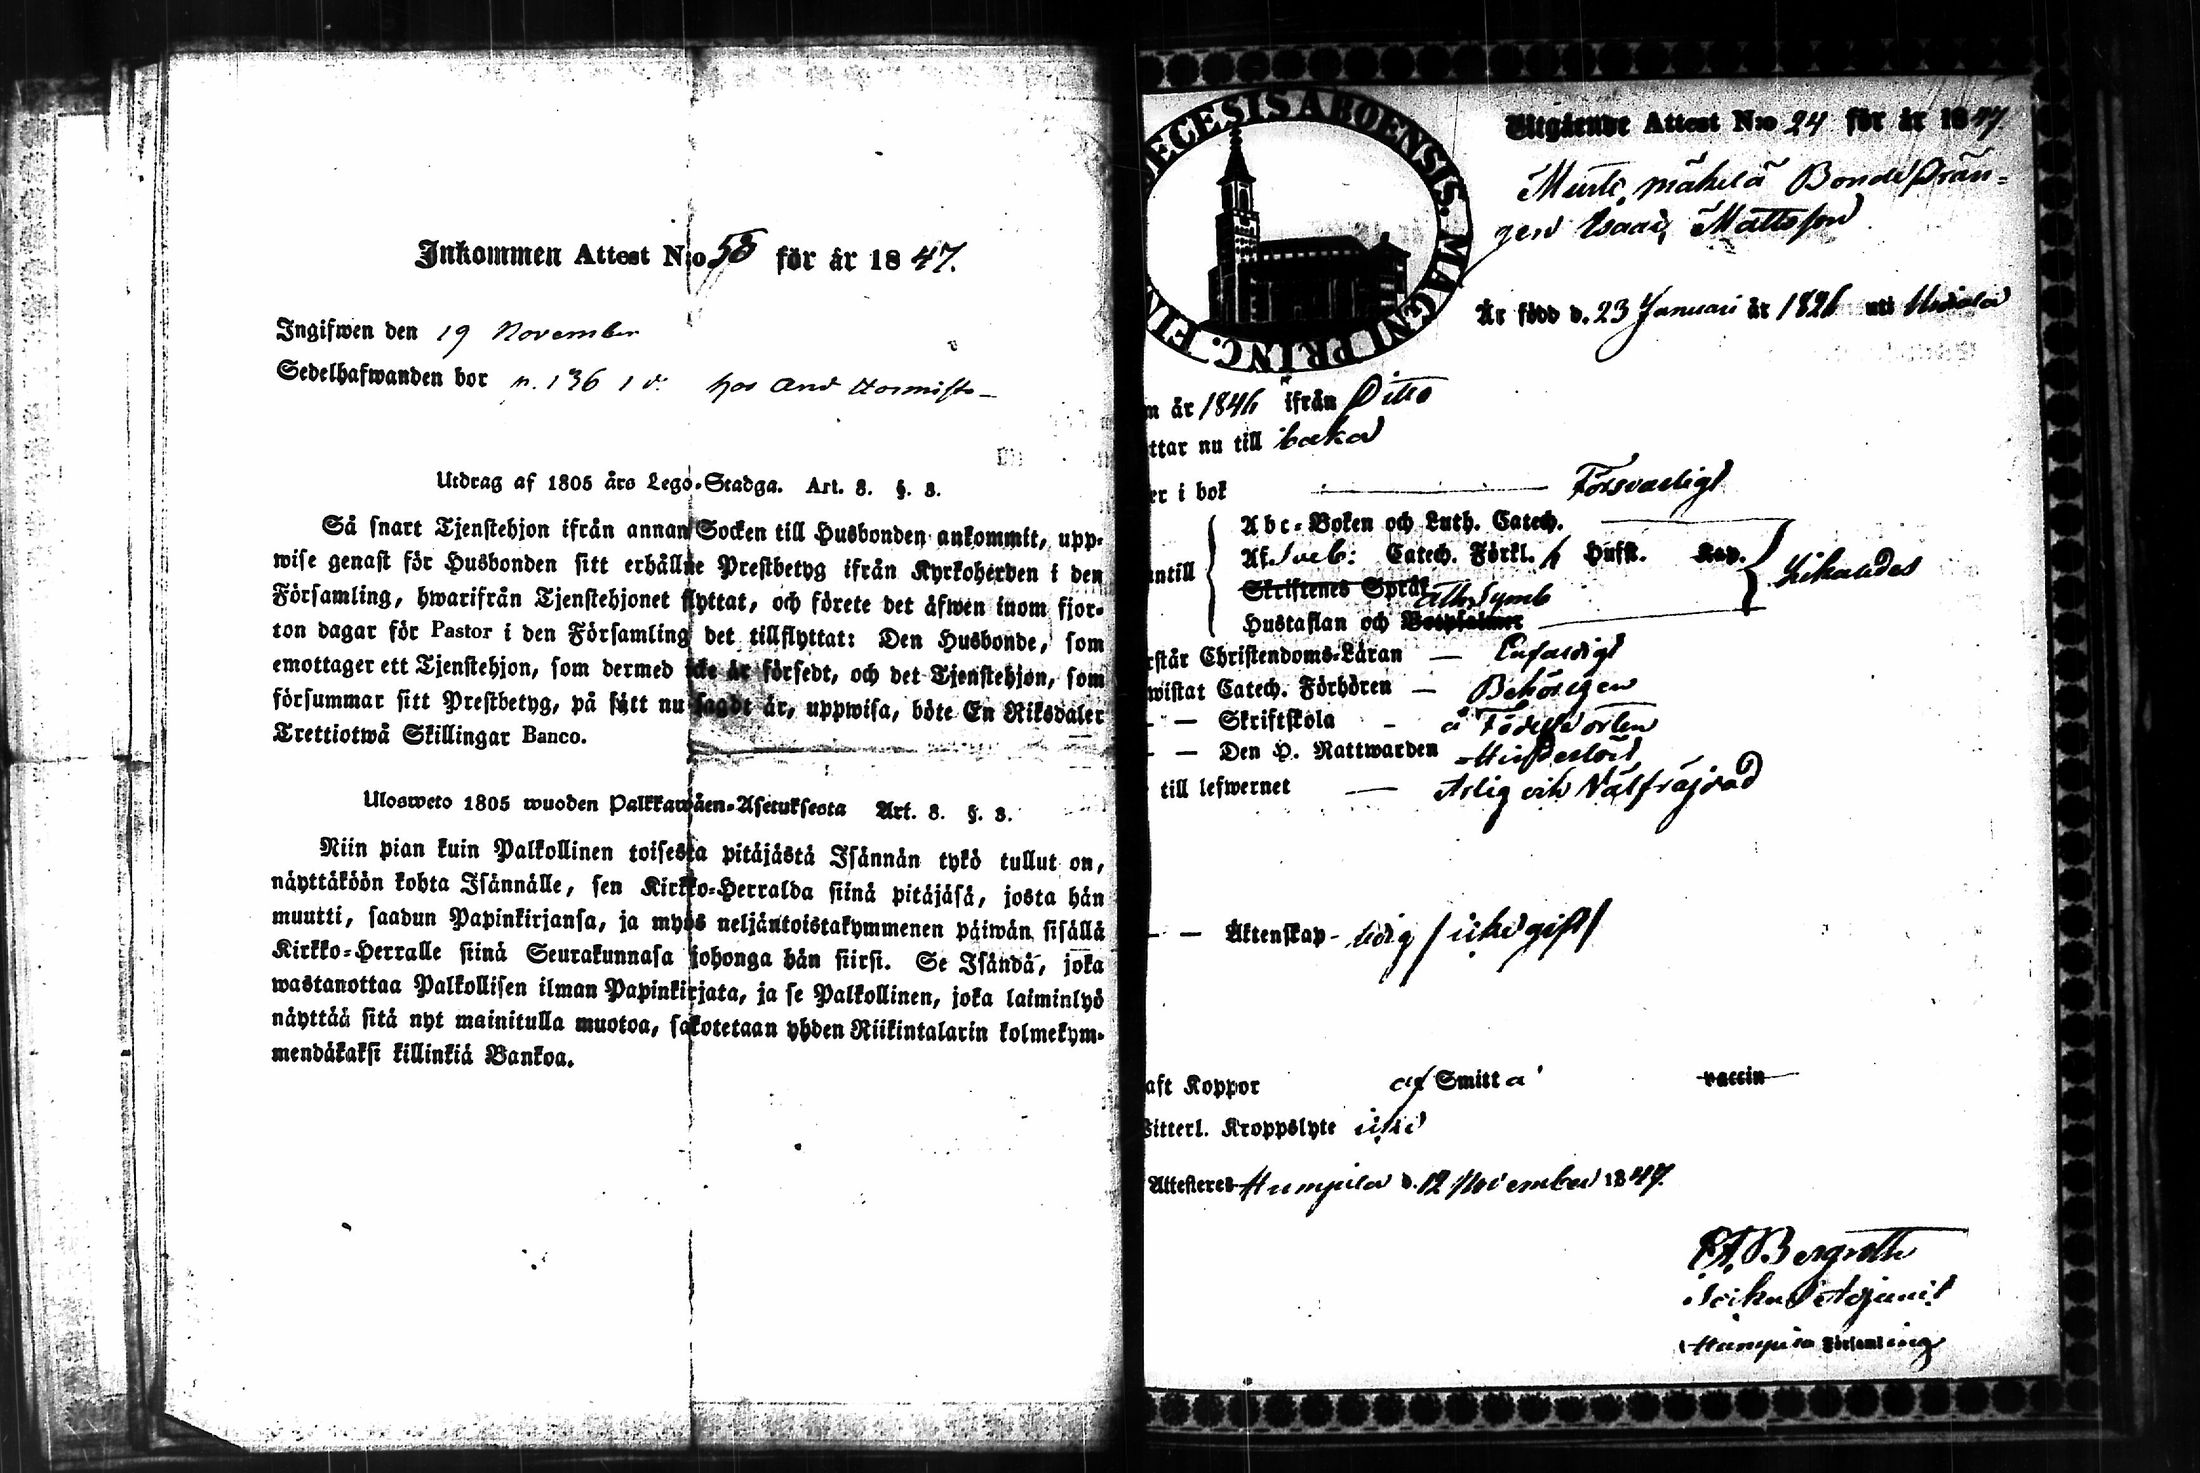 Inkommen Attest N:o 58 för år 1847.
Ingifwen den 19 November
Sedelhafwanden bor n. 136 hos And
Utdrag af 1805 års Lego-Stadga. Art. 8. §. 3.
Så snart Tjenstehjon ifrån annan Socken till Husbonden ankommit, upp-
wise genast för Husbonden sitt erhållne Prestbetyg ifrån Kyrkoherden i den
Församling, hwarifrån Tjenstehjonet flyttat, och förete det äfwen inom fjor-
ton dagar för Pastor i den Församling det tillflyttat: Den Husbonde, som
emottager ett Tjenstehjon, som dermed icke är försedt, och det Tjenstehjon, som
försummar sitt Prestbetyg, på sätt nu sagdt är, uppwisa, böte En Riksdaler
Trettiotwå Skillingar Banco.
Ulosweto 1805 wuoden Palkkawäen-Asetuksesta Art. 8. §. 3.
Niin pian kuin Palkollinen toisesta pitäjästä Isännän tykö tullut on,
näyttäköön kohta Isännälle, sen Kirkko-Herralda siinä pitäjäsä, josta hän
muutti, saadun Papinkirjansa, ja myös neljäntoistakymmenen päiwän sisällä
Kirkko-Herralle siinä Seurakunnasa johonga hän siirsi. Se Isändä, joka
wastanottaa Palkollisen ilman Papinkirjata, ja se Palkollinen, joka laiminlyö
näyttää sitä nyt mainitulla muotoa, sakotetaan yhden Riikintalarin kolmekym-
mendäkaksi killinkiä Bankoa.
ECESIS ABOENSIS. MAGNI PRINC. FIN
Utgående Attest N:o 24 för år 1847.
Mäkelä Bonde Drän-
gen Isaac Mattsson
Är född d. 23 Januari år 1826 uti Urdiala
m år 1846 ifrån Ditto
ttar nu till baka
er i bok Försvarligt
Abc-Boken och Luth. Catech.
Af Sveb: Catech. Förkl. Husst. Kap.
ntill Likaledes
Skriftenes Språk Ath. Symb
Hustaflan och Botpsalmer
rstår Christendoms-Läran — Enfaldigt
wistat Catech. Förhören — Behörigen
— — Skriftskola - å Födelse orten
— — Den H. Nattwarden
till lefwernet — Ärlig och Välfräjdad
— — Äktenskap - ledig / icke gift /
aft Koppor af Smitta vaccin
Witterl. Kroppslyte icke
Attesteras Humpila d. 12 November 1847.
Bergroth
Adjunct
Humpila Församling